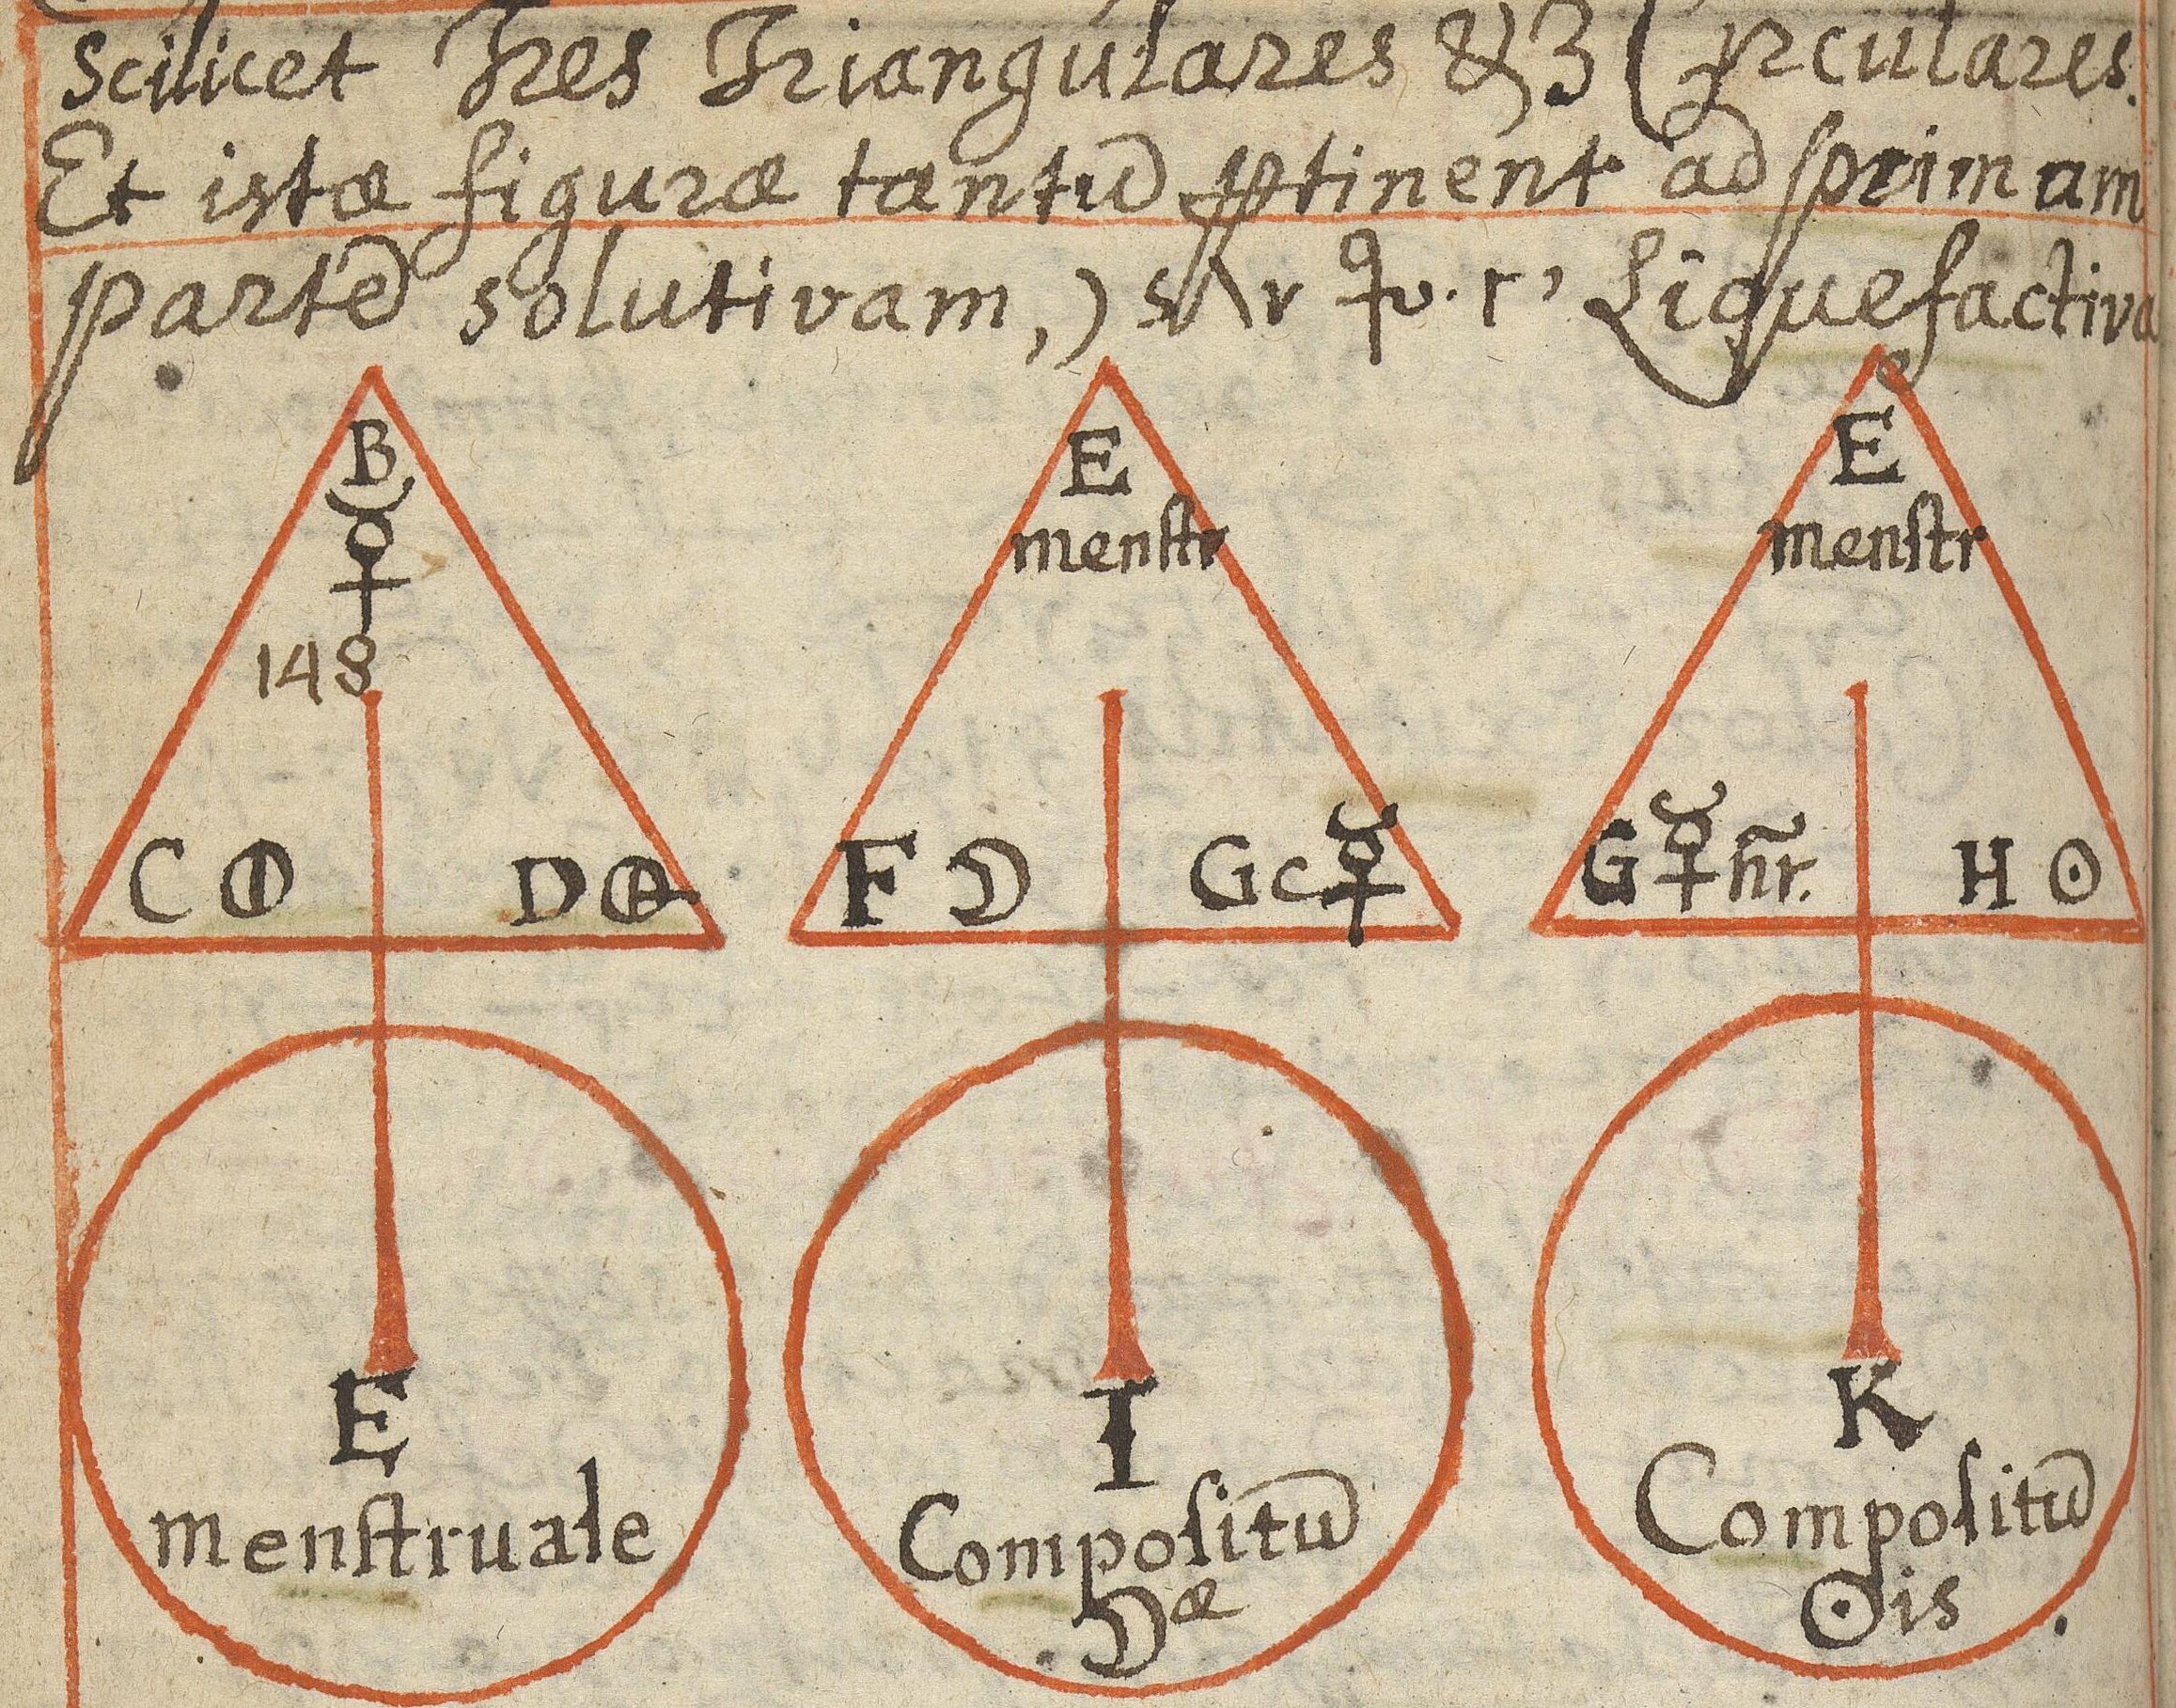 scilicet Tres Triangulares & 3 Circulares.
Et istæ figuræ tantū ꝑtinent ad primam
partē solutivam,) Liquefactiva
B
☿
148
C 🜕 D
E
menſtr
F ☽ G c ☿
E
menſtr
G ☿ H ☉
E
menſtruale
I
Compoſitū
☽æ
K
Compoſitū
☉is